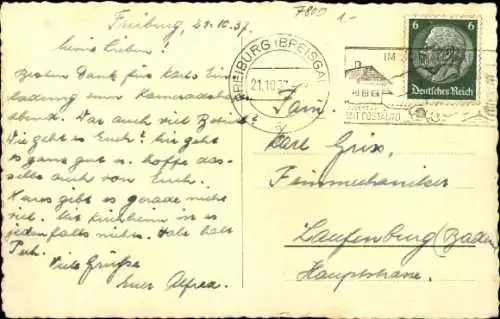 Freiburg, 21.10.37.
Meine Lieben!
Besten Dank für Karls Ein-
ladung zum Kameradschafts
abend. War auch viel Betrieb?
Wie geht es Euch? Mir geht
es ganz gut u. hoffe das-
selbe auch von Euch.
Neues gibt es gerade nicht
viel. Mit Kirchheim ist es
jedenfalls nichts. Habe halt
Pech.
Viele Grüße
Euer Alfred.
7800 1.-
FREIBURG (BREISGAU)
21.10.37
IM
MIT POSTAUTO
6 6
Deutsches Reich
Fam.
Karl Grix,
Feinmechaniker
Laufenburg (Baden)
Hauptstrasse.